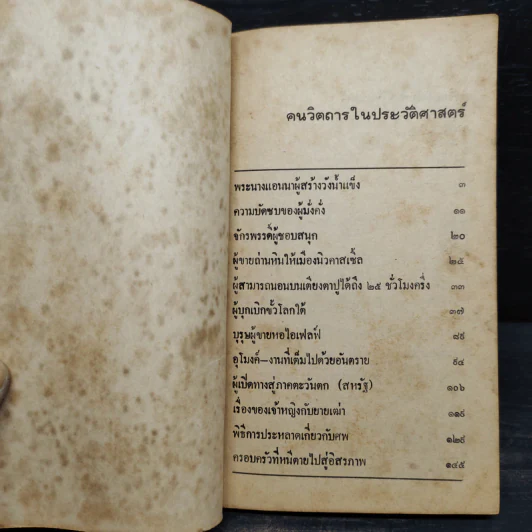 คนวิตถารในประวัติศาสตร์
พระนางแอนนาผู้สร้างวังน้ำแข็ง ๓
ความบัดซบของผู้มั่งคั่ง ๑๑
จักรพรรดิ์ผู้ชอบสนุก ๒๐
ผู้ขายถ่านหินให้เมืองนิวคาสเซิ้ล ๒๕
ผู้สามารถนอนบนเตียงตาปูได้ถึง ๒๕ ชั่วโมงครึ่ง ๓๓
ผู้บุกเบิกขั้วโลกใต้ ๓๗
บุรุษผู้ขายหอไอเฟลฟ์ ๘๙
อุโมงค์-งานที่เต็มไปด้วยอันตราย ๙๔
ผู้เปิดทางสู่ภาคตะวันตก (สหรัฐ) ๑๐๖
เรื่องของเจ้าหญิงกับยายเฒ่า ๑๑๙
พิธีการประหลาดเกี่ยวกับศพ ๑๒๙
ครอบครัวที่หนีตายไปสู่อิสรภาพ ๑๔๕